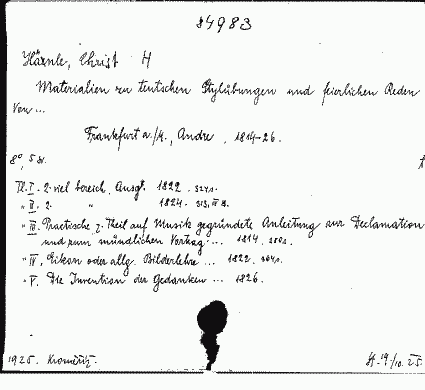 84983
Härnle, Christ H
Materialien zu teutschen Stylübungen und feierlichen Reden
Von ...
Frankfurt a./M., Andre, 1814-26.
8°, 5
Tl. I. 2. viel bereich. Ausg. 1822.
" II. 2. " 1824.
" III. Practische z. Theil auf Musik gegründete Anleitung zur Declamation
und zum mündlichen Vortrag ... 1814.
" IV. Eikon oder allg. Bilderlehre ... 1822.
" V. Die Invention der Gedanken ... 1826.
1925. Kroměříž. 19/10. 25.